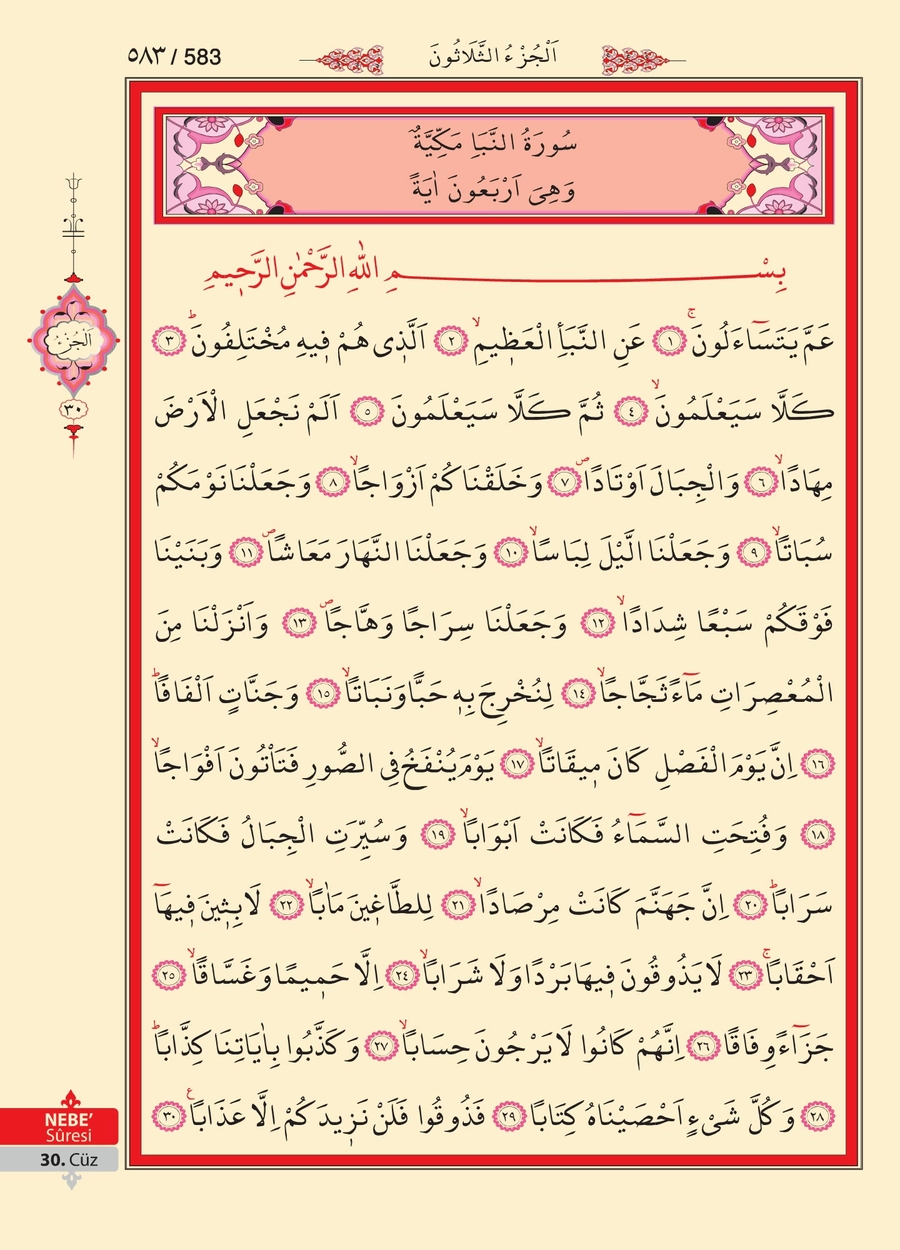 ٥٨٣ / 583
اَلْجُزْءُ الثَّلَاثُونَ
سُورَةُ النَّبَاِ مَكِّيَّةٌ
وَهِىَ اَرْبَعُونَ اٰيَةً
بِسْمِ اللّٰهِ الرَّحْمٰنِ الرَّحٖيمِ
عَمَّ يَتَسَٓاءَلُونَۚ ﴿١﴾ عَنِ النَّبَأِ الْعَظٖيمِۙ ﴿٢﴾ اَلَّذٖى هُمْ فٖيهِ مُخْتَلِفُونَؕ ﴿٣﴾
كَلَّا سَيَعْلَمُونَۙ ﴿٤﴾ ثُمَّ كَلَّا سَيَعْلَمُونَ ﴿٥﴾ اَلَمْ نَجْعَلِ الْاَرْضَ
مِهَادًاۙ ﴿٦﴾ وَالْجِبَالَ اَوْتَادًاۖ ﴿٧﴾ وَخَلَقْنَاكُمْ اَزْوَاجًاۙ ﴿٨﴾ وَجَعَلْنَا نَوْمَكُمْ
سُبَاتًاۙ ﴿٩﴾ وَجَعَلْنَا الَّيْلَ لِبَاسًاۙ ﴿١٠﴾ وَجَعَلْنَا النَّهَارَ مَعَاشًاۖ ﴿١١﴾ وَبَنَيْنَا
فَوْقَكُمْ سَبْعًا شِدَادًاۙ ﴿١٢﴾ وَجَعَلْنَا سِرَاجًا وَهَّاجًاۖ ﴿١٣﴾ وَاَنْزَلْنَا مِنَ
الْمُعْصِرَاتِ مَٓاءً ثَجَّاجًاۙ ﴿١٤﴾ لِنُخْرِجَ بِهٖ حَبًّا وَنَبَاتًاۙ ﴿١٥﴾ وَجَنَّاتٍ اَلْفَافًاؕ
﴿١٦﴾ اِنَّ يَوْمَ الْفَصْلِ كَانَ مٖيقَاتًاۙ ﴿١٧﴾ يَوْمَ يُنْفَخُ فِى الصُّورِ فَتَاْتُونَ اَفْوَاجًاۙ
﴿١٨﴾ وَفُتِحَتِ السَّمَٓاءُ فَكَانَتْ اَبْوَابًاۙ ﴿١٩﴾ وَسُيِّرَتِ الْجِبَالُ فَكَانَتْ
سَرَابًاؕ ﴿٢٠﴾ اِنَّ جَهَنَّمَ كَانَتْ مِرْصَادًاۙ ﴿٢١﴾ لِلطَّاغٖينَ مَاٰبًاۙ ﴿٢٢﴾ لَابِثٖينَ فٖيهَٓا
اَحْقَابًاۚ ﴿٢٣﴾ لَا يَذُوقُونَ فٖيهَا بَرْدًا وَلَا شَرَابًاۙ ﴿٢٤﴾ اِلَّا حَمٖيمًا وَغَسَّاقًاۙ ﴿٢٥﴾
جَزَٓاءً وِفَاقًا ﴿٢٦﴾ اِنَّهُمْ كَانُوا لَا يَرْجُونَ حِسَابًاۙ ﴿٢٧﴾ وَكَذَّبُوا بِاٰيَاتِنَا كِذَّابًاؕ
﴿٢٨﴾ وَكُلَّ شَىْءٍ اَحْصَيْنَاهُ كِتَابًا ﴿٢٩﴾ فَذُوقُوا فَلَنْ نَزٖيدَكُمْ اِلَّا عَذَابًاࣖ ﴿٣٠﴾
اَلْجُزْءُ
٣٠
NEBE’
Sûresi
30. Cüz